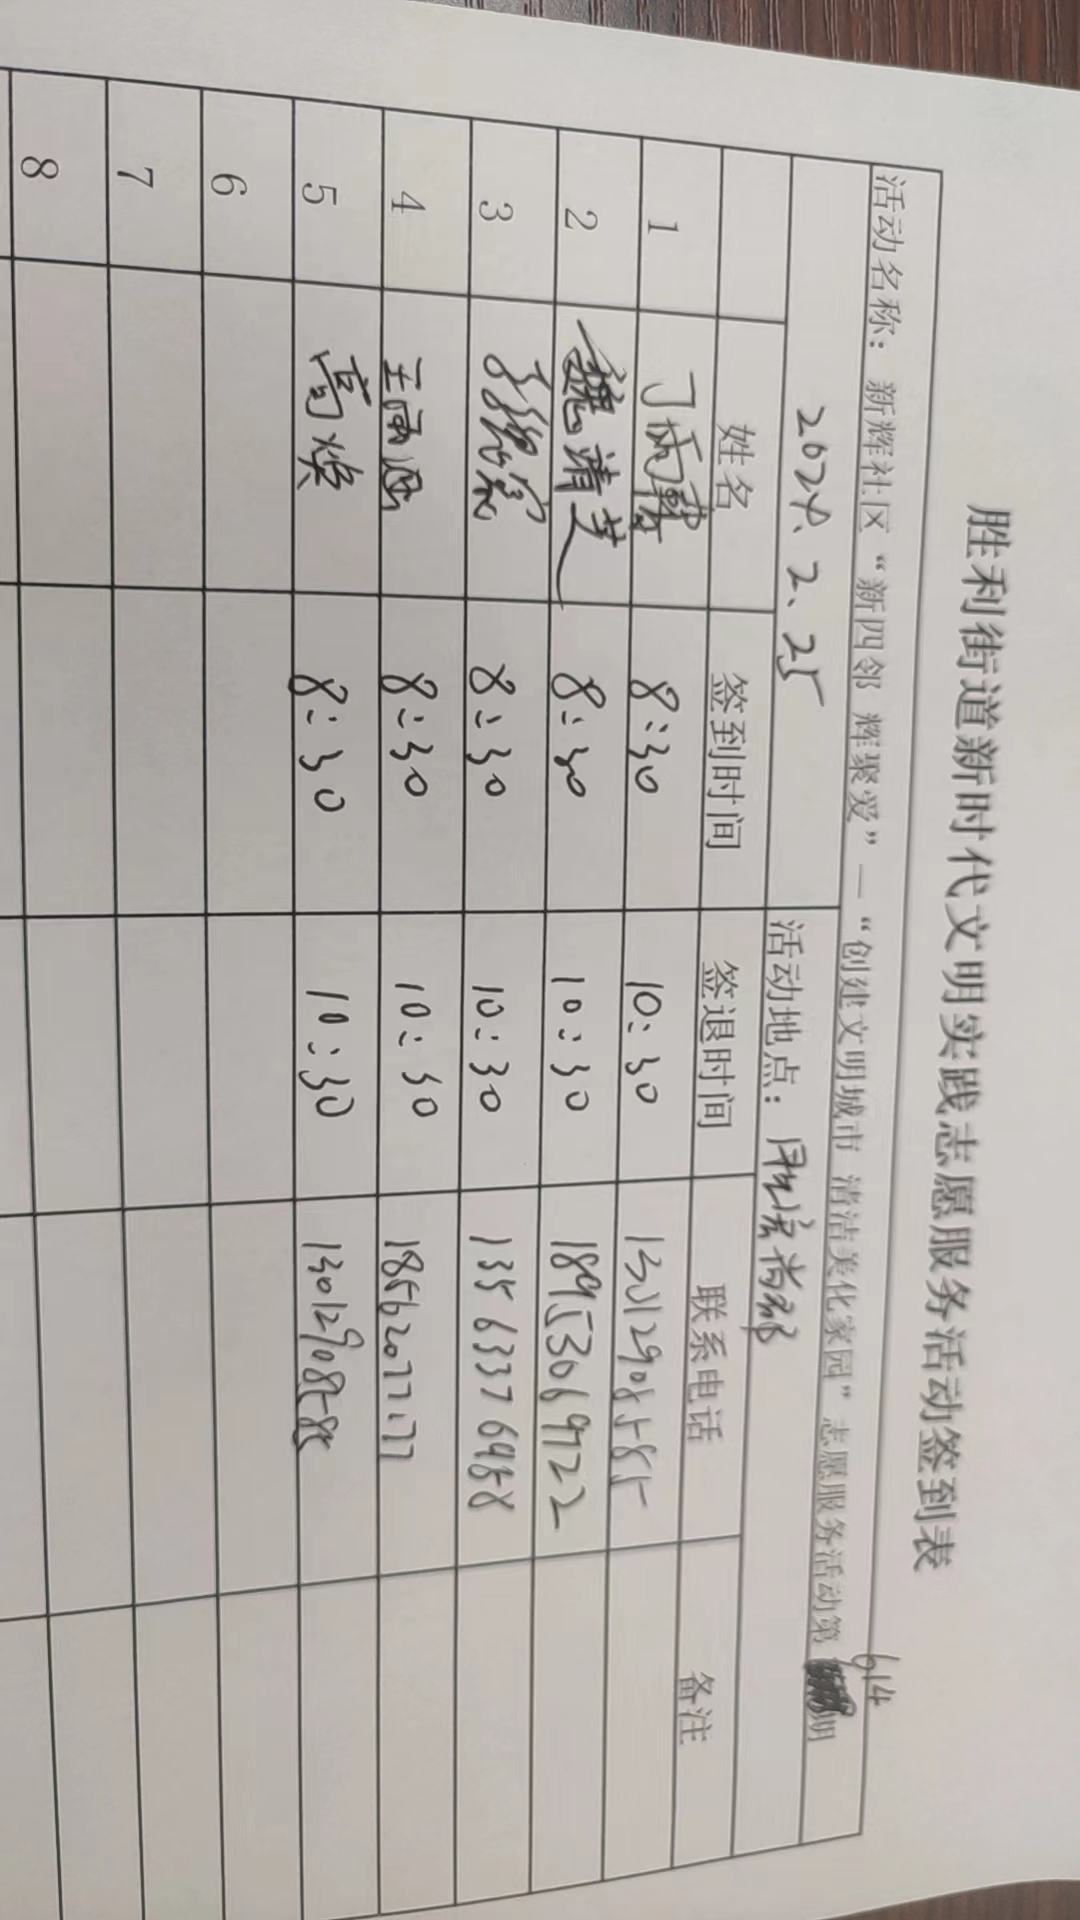 胜利街道新时代文明实践志愿服务活动签到表
活动名称：新辉社区“新四邻 辉聚爱”—“创建文明城市 清洁美化家园”志愿服务活动第614期
2024.2.25 活动地点：
姓名 签到时间 签退时间 联系电话 备注
1 丁 8:30 10:30 13012908585
2 魏靖芝 8:30 10:30 18953069722
3 8:30 10:30 13563376988
4 王雨涵 8:30 10:30 18562077177
5 高焕 8:30 10:30 13012908585
6
7
8